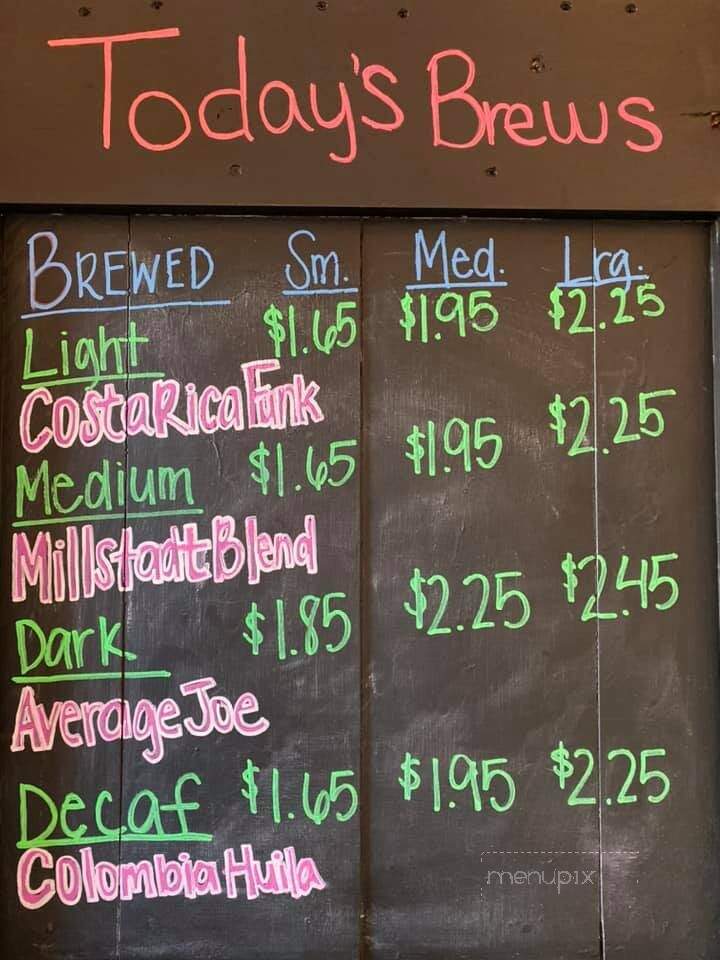 Today's Brews
BREWED Sm. Med. Lrg.
Light $1.65 $1.95 $2.25
Costa Rica Funk
Medium $1.65 $1.95 $2.25
Millstadt Blend
Dark $1.85 $2.25 $2.45
Average Joe
Decaf $1.65 $1.95 $2.25
Colombia Huila
menupix